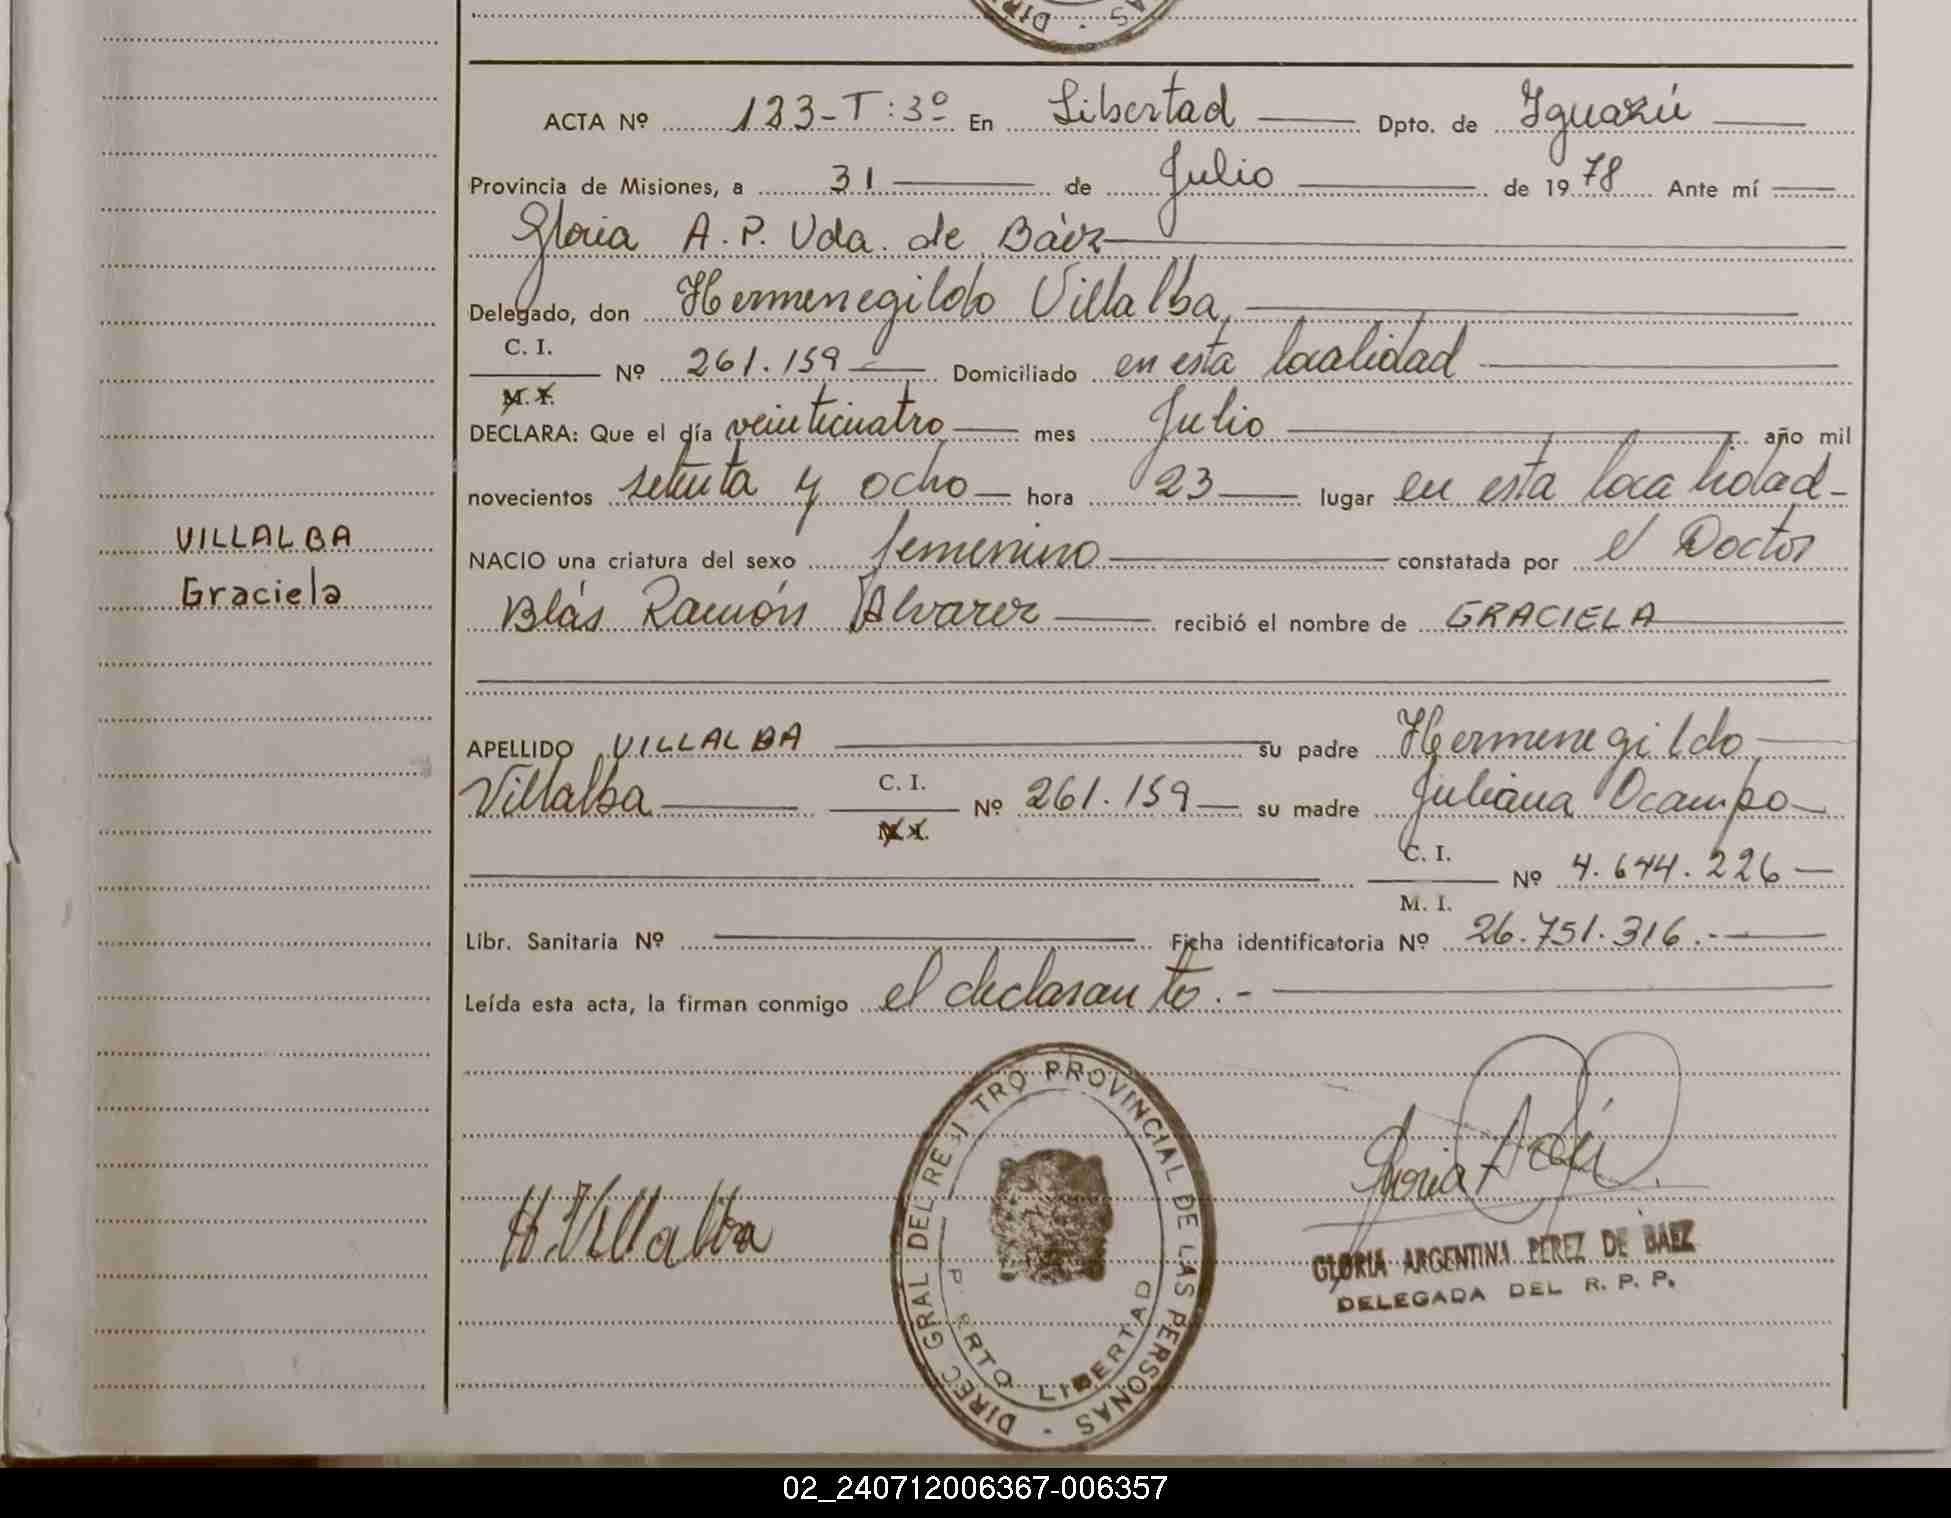 DIR · AS
ACTA Nº 133-T:3º En Libertad Dpto. de Iguazú
Provincia de Misiones, a 31 de Julio de 1978 Ante mí
Gloria A. P. Vda. de Báez
Delegado, don Hermenegildo Villalba,
C. I.
Nº 261.159 Domiciliado en esta localidad
M. I.
DECLARA: Que el día veinticuatro mes Julio año mil
novecientos setenta y ocho hora 23 lugar en esta localidad
NACIO una criatura del sexo femenino constatada por el Doctor
Blás Ramón Alvarez recibió el nombre de GRACIELA
VILLALBA
Graciela
APELLIDO VILLALBA su padre Hermenegildo
Villalba C. I. Nº 261.159 su madre Juliana Ocampo
M. I.
C. I.
Nº 4.644.226
M. I.
Libr. Sanitaria Nº Ficha identificatoria Nº 26.751.316.-
Leída esta acta, la firman conmigo el declarante.-
DIREC GRAL DEL REGI TRO PROVINCIAL DE LAS PERSONAS -
P ERTO LIBERTAD
H. Villalba
Gloria A
GLORIA ARGENTINA PEREZ DE BAEZ
DELEGADA DEL R. P. P.
02_240712006367-006357